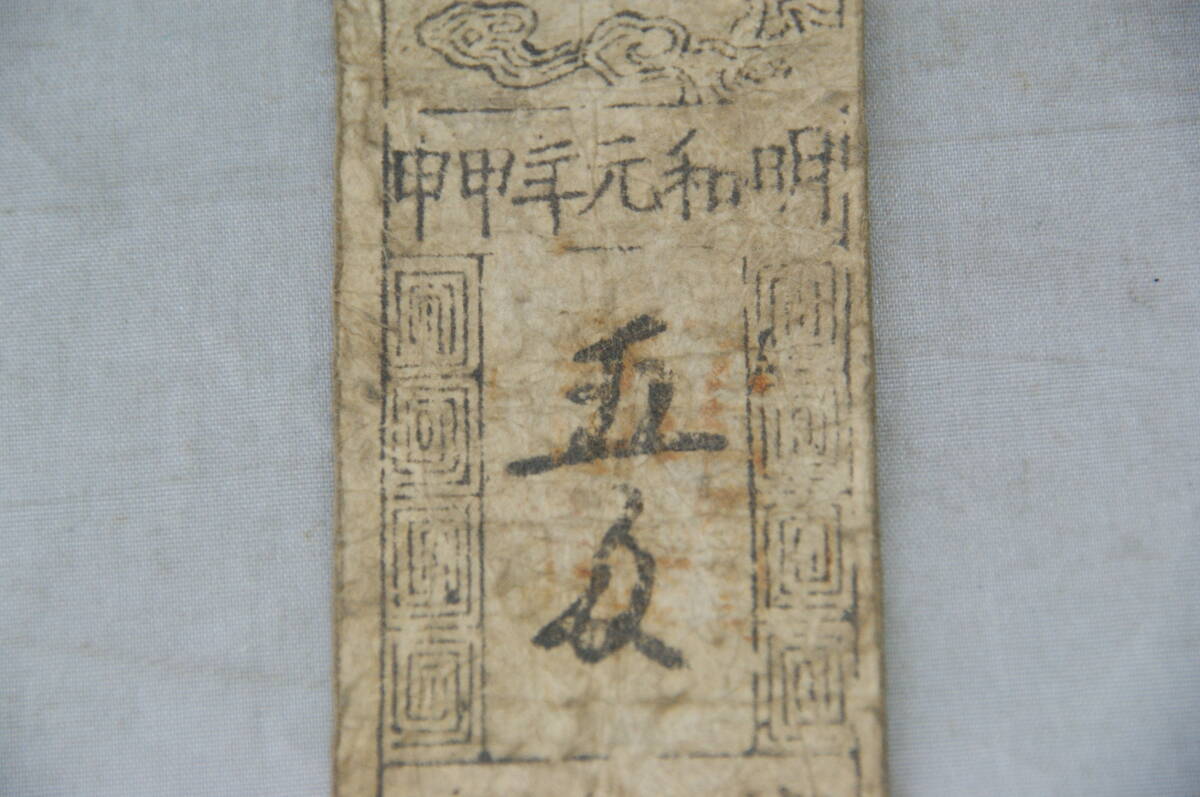 明和元年甲申
五匁